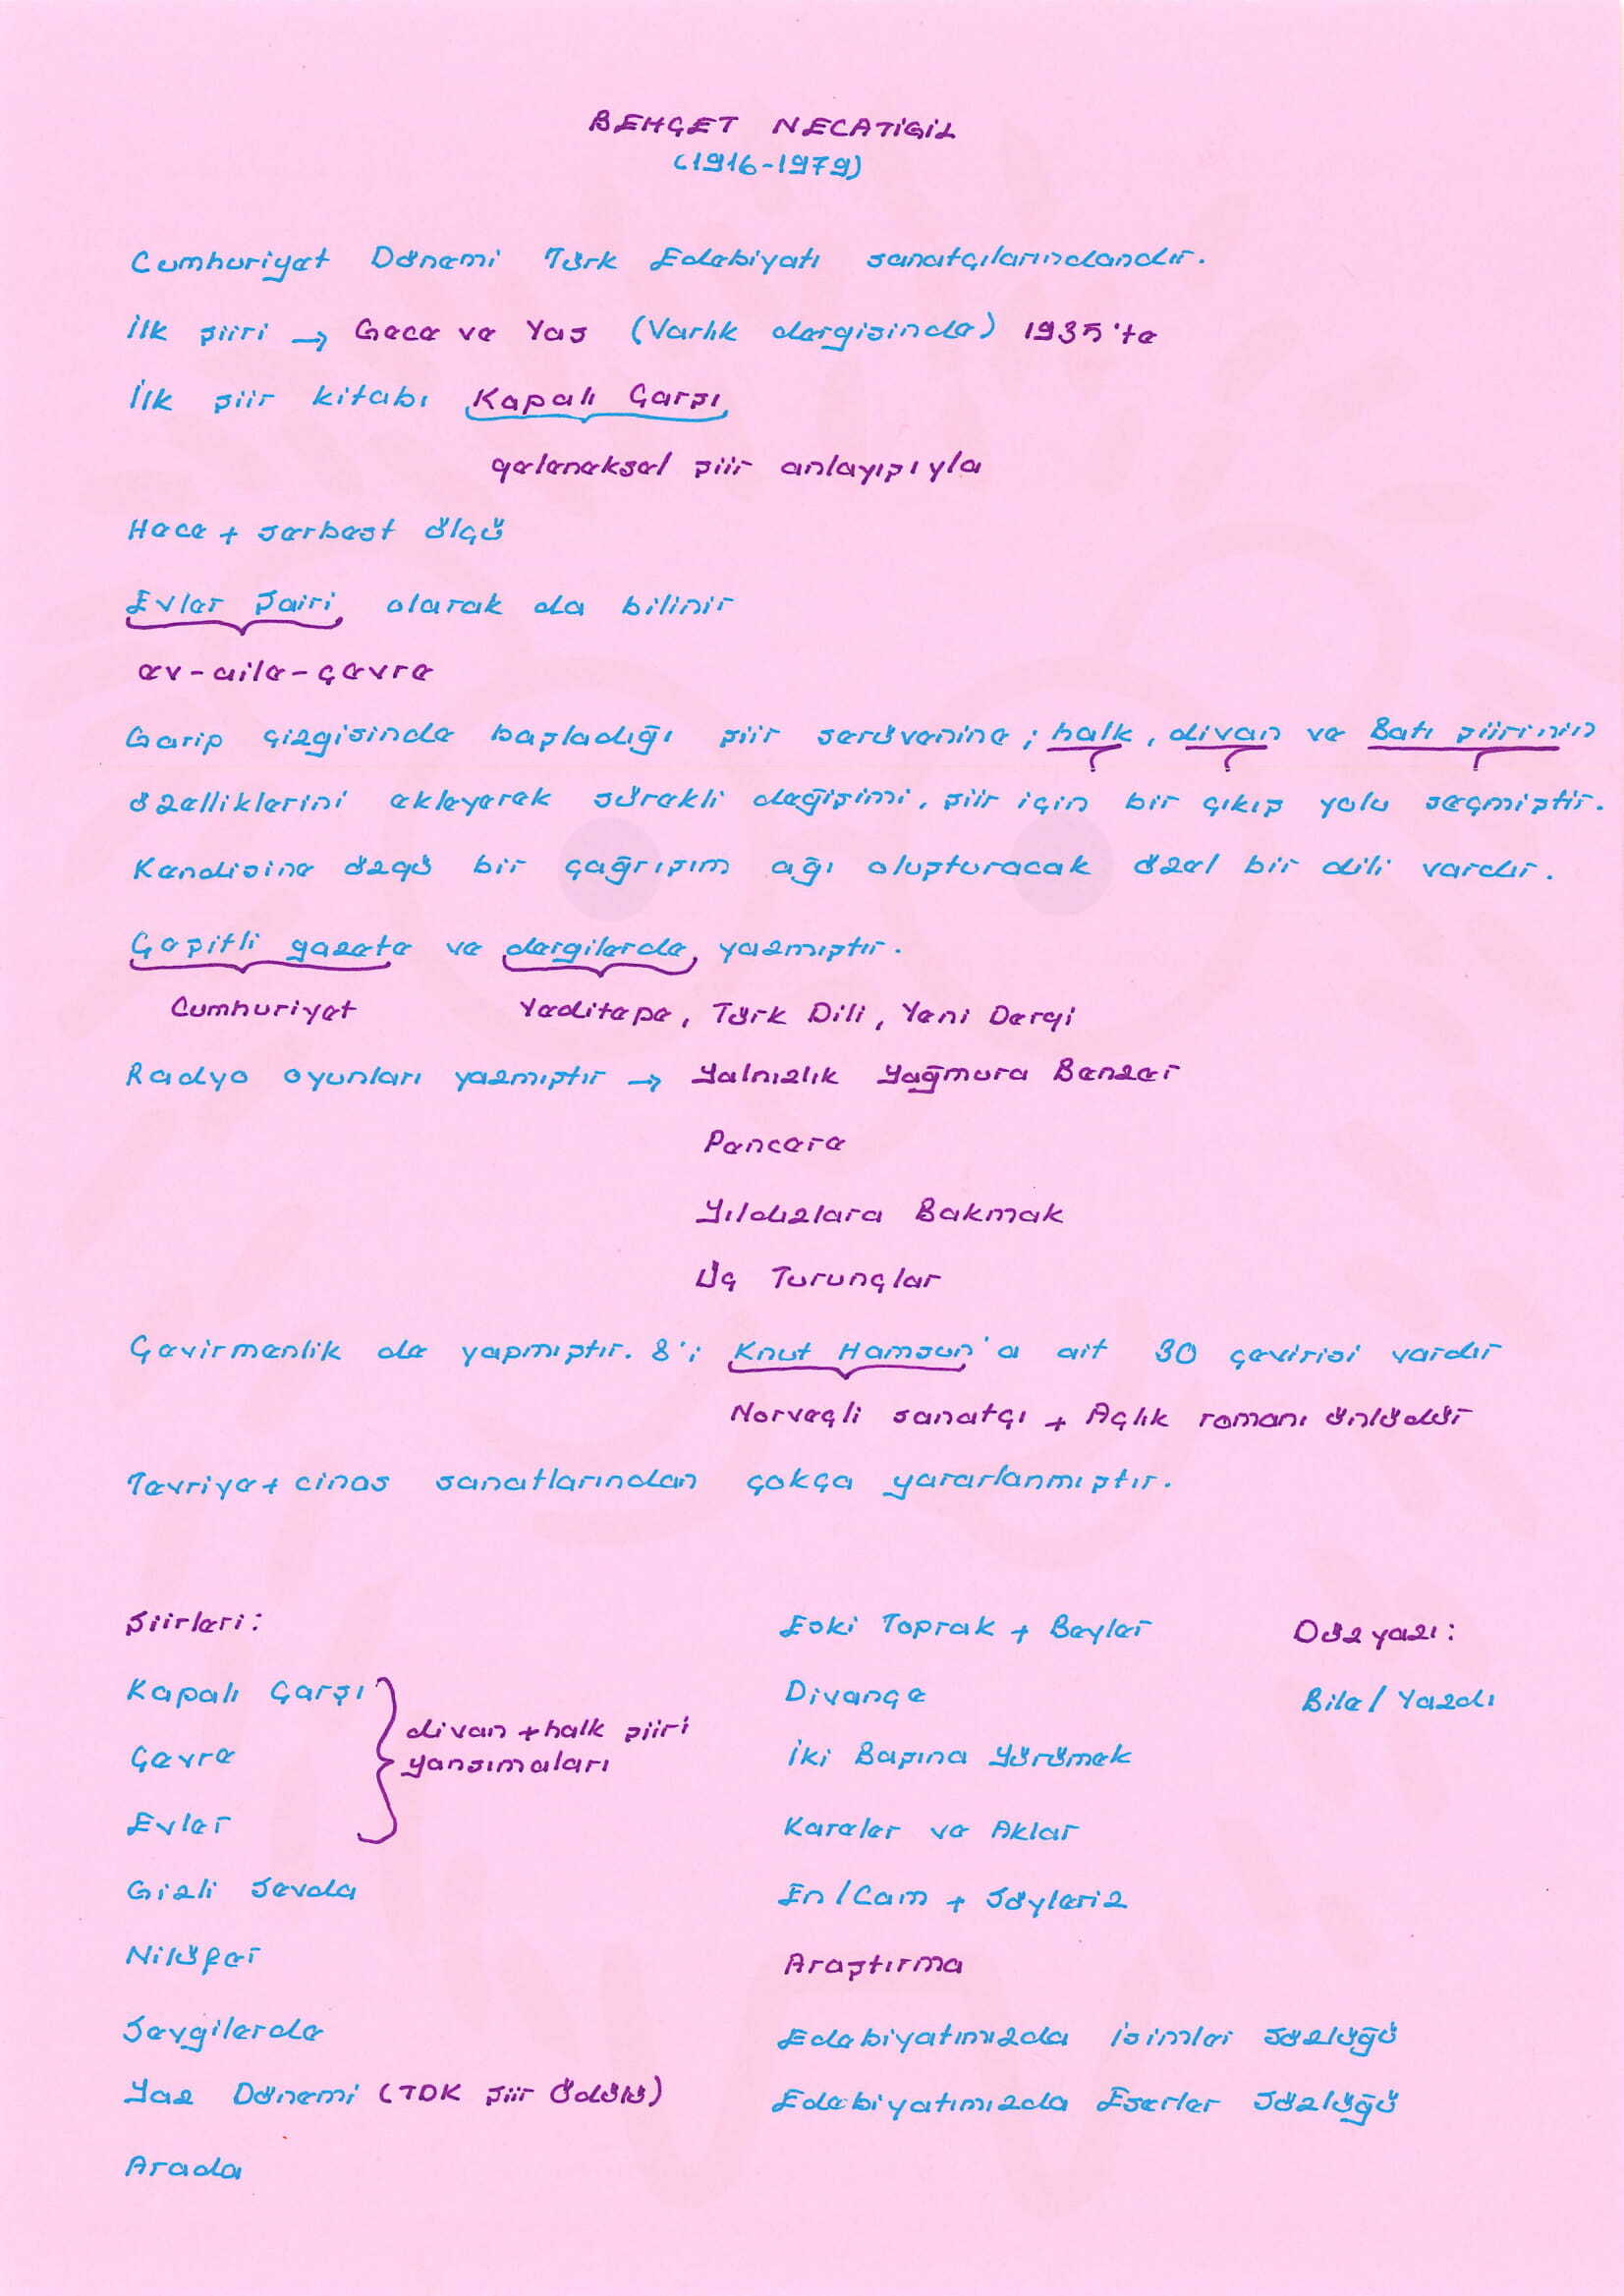 BEHÇET NECATİGİL
(1916-1979)
Cumhuriyet Dönemi Türk Edebiyatı sanatçılarındandır.
İlk şiiri → Gece ve Yas (Varlık dergisinde) 1935'te
İlk şiir kitabı Kapalı Çarşı
geleneksel şiir anlayışıyla
Hece + serbest ölçü
Evler Şairi olarak da bilinir
ev-aile-çevre
Garip çizgisinde başladığı şiir serüvenine; halk, divan ve Batı şiirinin
özelliklerini ekleyerek sürekli değişimi, şiir için bir çıkış yolu seçmiştir.
Kendisine özgü bir çağrışım ağı oluşturacak özel bir dili vardır.
Çeşitli gazete ve dergilerde yazmıştır.
Cumhuriyet Yeditepe, Türk Dili, Yeni Dergi
Radyo oyunları yazmıştır → Yalnızlık Yağmura Benzer
Pencere
Yıldızlara Bakmak
Üç Turunçlar
Çevirmenlik de yapmıştır. 8'i Knut Hamsun'a ait 30 çevirisi vardır
Norveçli sanatçı + Açlık romanı ünlüdür
Tevriye + cinas sanatlarından çokça yararlanmıştır.
Şiirleri:
Kapalı Çarşı
Çevre
Evler
divan + halk şiiri
yansımaları
Gizli Sevda
Nilüfer
Sevgilerde
Yaz Dönemi (TDK Şiir Ödülü)
Arada
Eski Toprak + Beyler
Divançe
İki Başına Yürümek
Kareler ve Aklar
En/Cam + Söyleriz
Araştırma
Edebiyatımızda İsimler Sözlüğü
Edebiyatımızda Eserler Sözlüğü
Düzyazı:
Bile/Yazdı